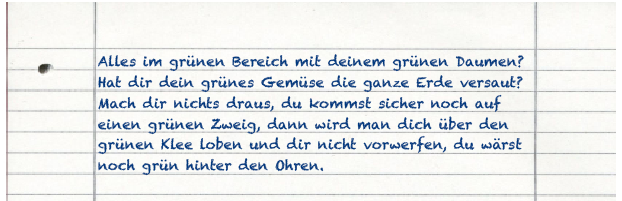 Alles im grünen Bereich mit deinem grünen Daumen?
Hat dir dein grünes Gemüse die ganze Erde versaut?
Mach dir nichts draus, du kommst sicher noch auf
einen grünen Zweig, dann wird man dich über den
grünen Klee loben und dir nicht vorwerfen, du wärst
noch grün hinter den Ohren.